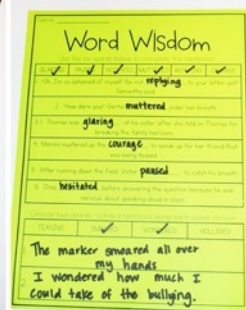 Word Wisdom
1. "Oh, I'm so ashamed of myself for not replying to your letter yet!"
Samantha said.
2. "How dare you!" Gertie muttered under her breath.
3. Thomas was glaring at his sister after she told on Thomas for
breaking the family heirloom.
4. Marisol mustered up the courage to speak up for her friend that
was being teased.
5. After running down the field, Victor paused to catch his breath.
6. Chaz hesitated before answering the question because he was
nervous about speaking aloud in class.
TEASING SMEARED WONDERED HOLLERED
1. The marker smeared all over
my hands
2. I wondered how much I
could take of the bullying.